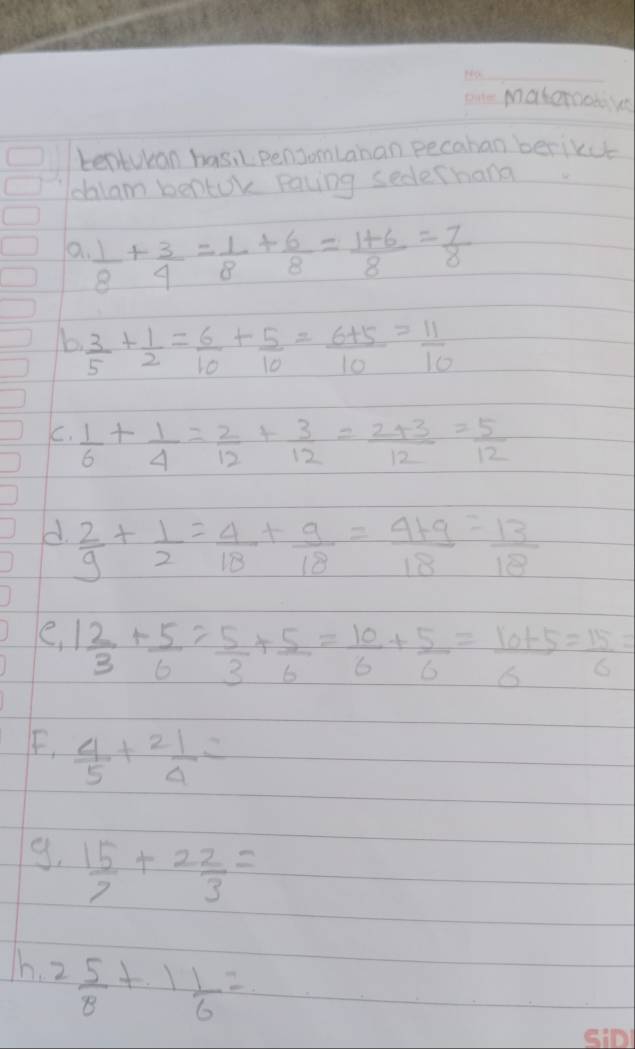 No.
Date
Matematika
tentukan hasil penjomlahan pecahan berikut
dalam bentuk paling sederhana
a. 1/8 + 3/4 = 1/8 + 6/8 = 1+6/8 = 7/8
b. 3/5 + 1/2 = 6/10 + 5/10 = 6+5/10 = 11/10
c. 1/6 + 1/4 = 2/12 + 3/12 = 2+3/12 = 5/12
d. 2/9 + 1/2 = 4/18 + 9/18 = 4+9/18 = 13/18
e. 1 2/3 + 5/6 = 5/3 + 5/6 = 10/6 + 5/6 = 10+5/6 = 15/6 =
F. 4/5 + 2 1/4 =
g. 1 5/7 + 2 2/3 =
h. 2 5/8 + 1 1/6 =
SiD